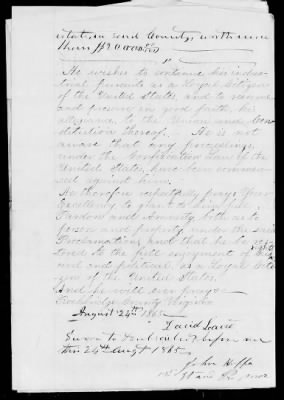 estate, in said County, worth more
than $20.000.00
He wishes to continue his indus-
trial pursuits as a loyal Citizen
of the United States, and to observe
and preserve in good faith, his
allegiance to the Union and Con-
stitution thereof. He is not
aware that any proceedings
under the Confiscation Laws of the
United States, have been commen-
ced against him.
He therefore respectfully prays Your
Excellency to grant to him full
Pardon and Amnesty both as to
person and property under the said
Proclamation, and that he be res-
tored to the full enjoyment of
civil and political, as a loyal Citi-
zen of the United States,
And he will ever pray &c
Rockbridge County Virginia
August 24th 1865.
David
Sworn to & subscribed before me
this 24th August 1865.
John